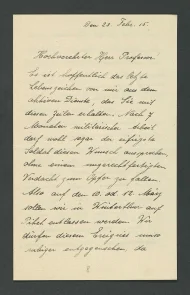 den 28. Febr. 15.
Hochverehrter Herr Professor!
Es ist hoffentlich das letzte
Lebenszeichen von mir aus dem
aktiven Dienste, das Sie mit
diesen Zeilen erhalten. Nach 7
Monaten militärischer Arbeit
darf wohl sogar der eifrigste
Soldat diesen Wunsch aussprechen,
ohne einem ungerechtfertigten
Verdacht zum Opfer zu fallen.
Also auf den 10. od. 12. März
sollen wir in Winterthur auf
Pikett entlassen werden. Wir
dürfen diesem Ereignis umso
ruhiger entgegensehen, da